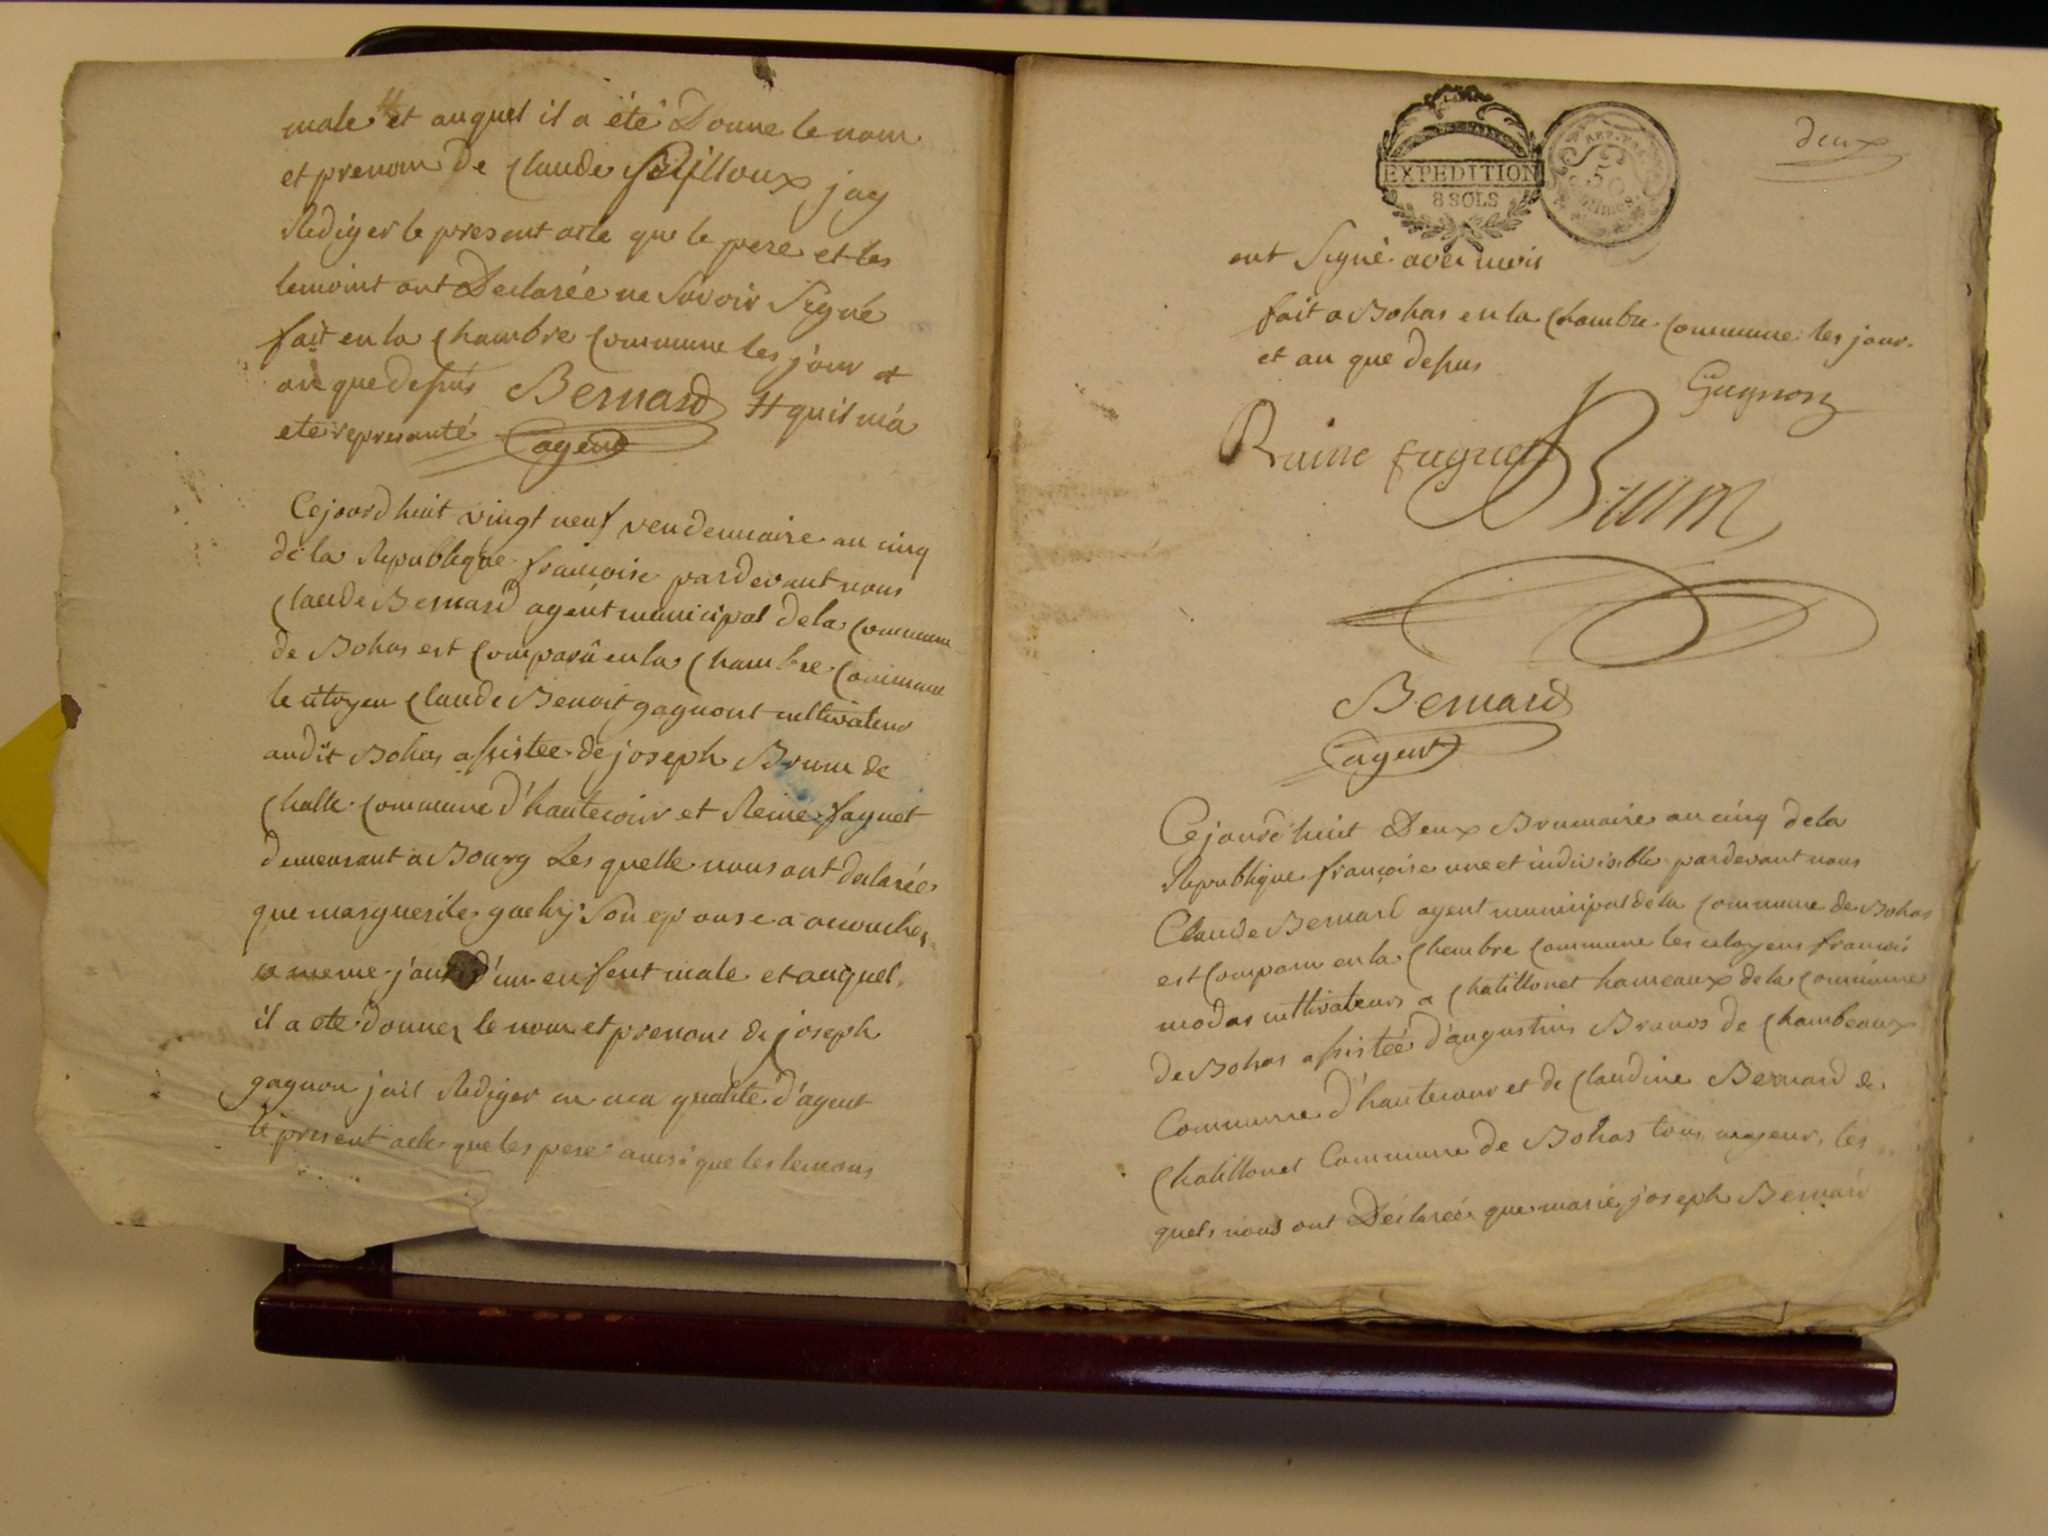 male # et auquel il a été Donne le nom
et prenom de Claude jay
Rediger le present acte que le pere et les
temoint ont Declarée ne Savoir Signé
fait en la Chambre Commune les jour et
ans que depus Bernard # quil m'a
eté represanté agent
Cejourd huit vingt neuf vendemiaire an cinq
de la Republique francoise pardevant nous
Claude Bernard agent municipal dela Commune
de Bohas est Comparu en la Chambre Commune
le citoyen Claude Benoit gagnont cultivateur
audit Bohas assistee de joseph Brun de
Challe Commune d'hautecour et Reine faguet
demeurant a Bourg Les quelle nous ont declarée
que marguerite gachy Son epouse a acouchez
ce meme jour d'un enfent male et auquel
il a ete donnez le nom et prenom de joseph
gagnon jait Rediger en ma qualité d'agent
le present acte que les pere ainsi que les temoins
deux
EXPEDITION
8 SOLS
REP.
50
ont Signé avec moi
fait a Bohas en la Chambre Commune les jour
et an que depus
Gagnon
Raine faguet Brun
Bernard
agent
Cejourd'huit Deux Brumaire an cinq dela
Republique françoise une et indivisible pardevant nous
Claude Bernard agent municipal de la Commune de Bohas
est Comparu en la Chambre Commune les citoyens francois
modas cultivateurs a Chatillonet hameaux de la Commune
de Bohas assistée d'augustin Bravos de Chambeaux
Commune d'hautecour et de Claudine Bernard de
Chatillonet Commune de Bohas tous majeur, les
quels nous ont Déclarée que marie joseph Bernard